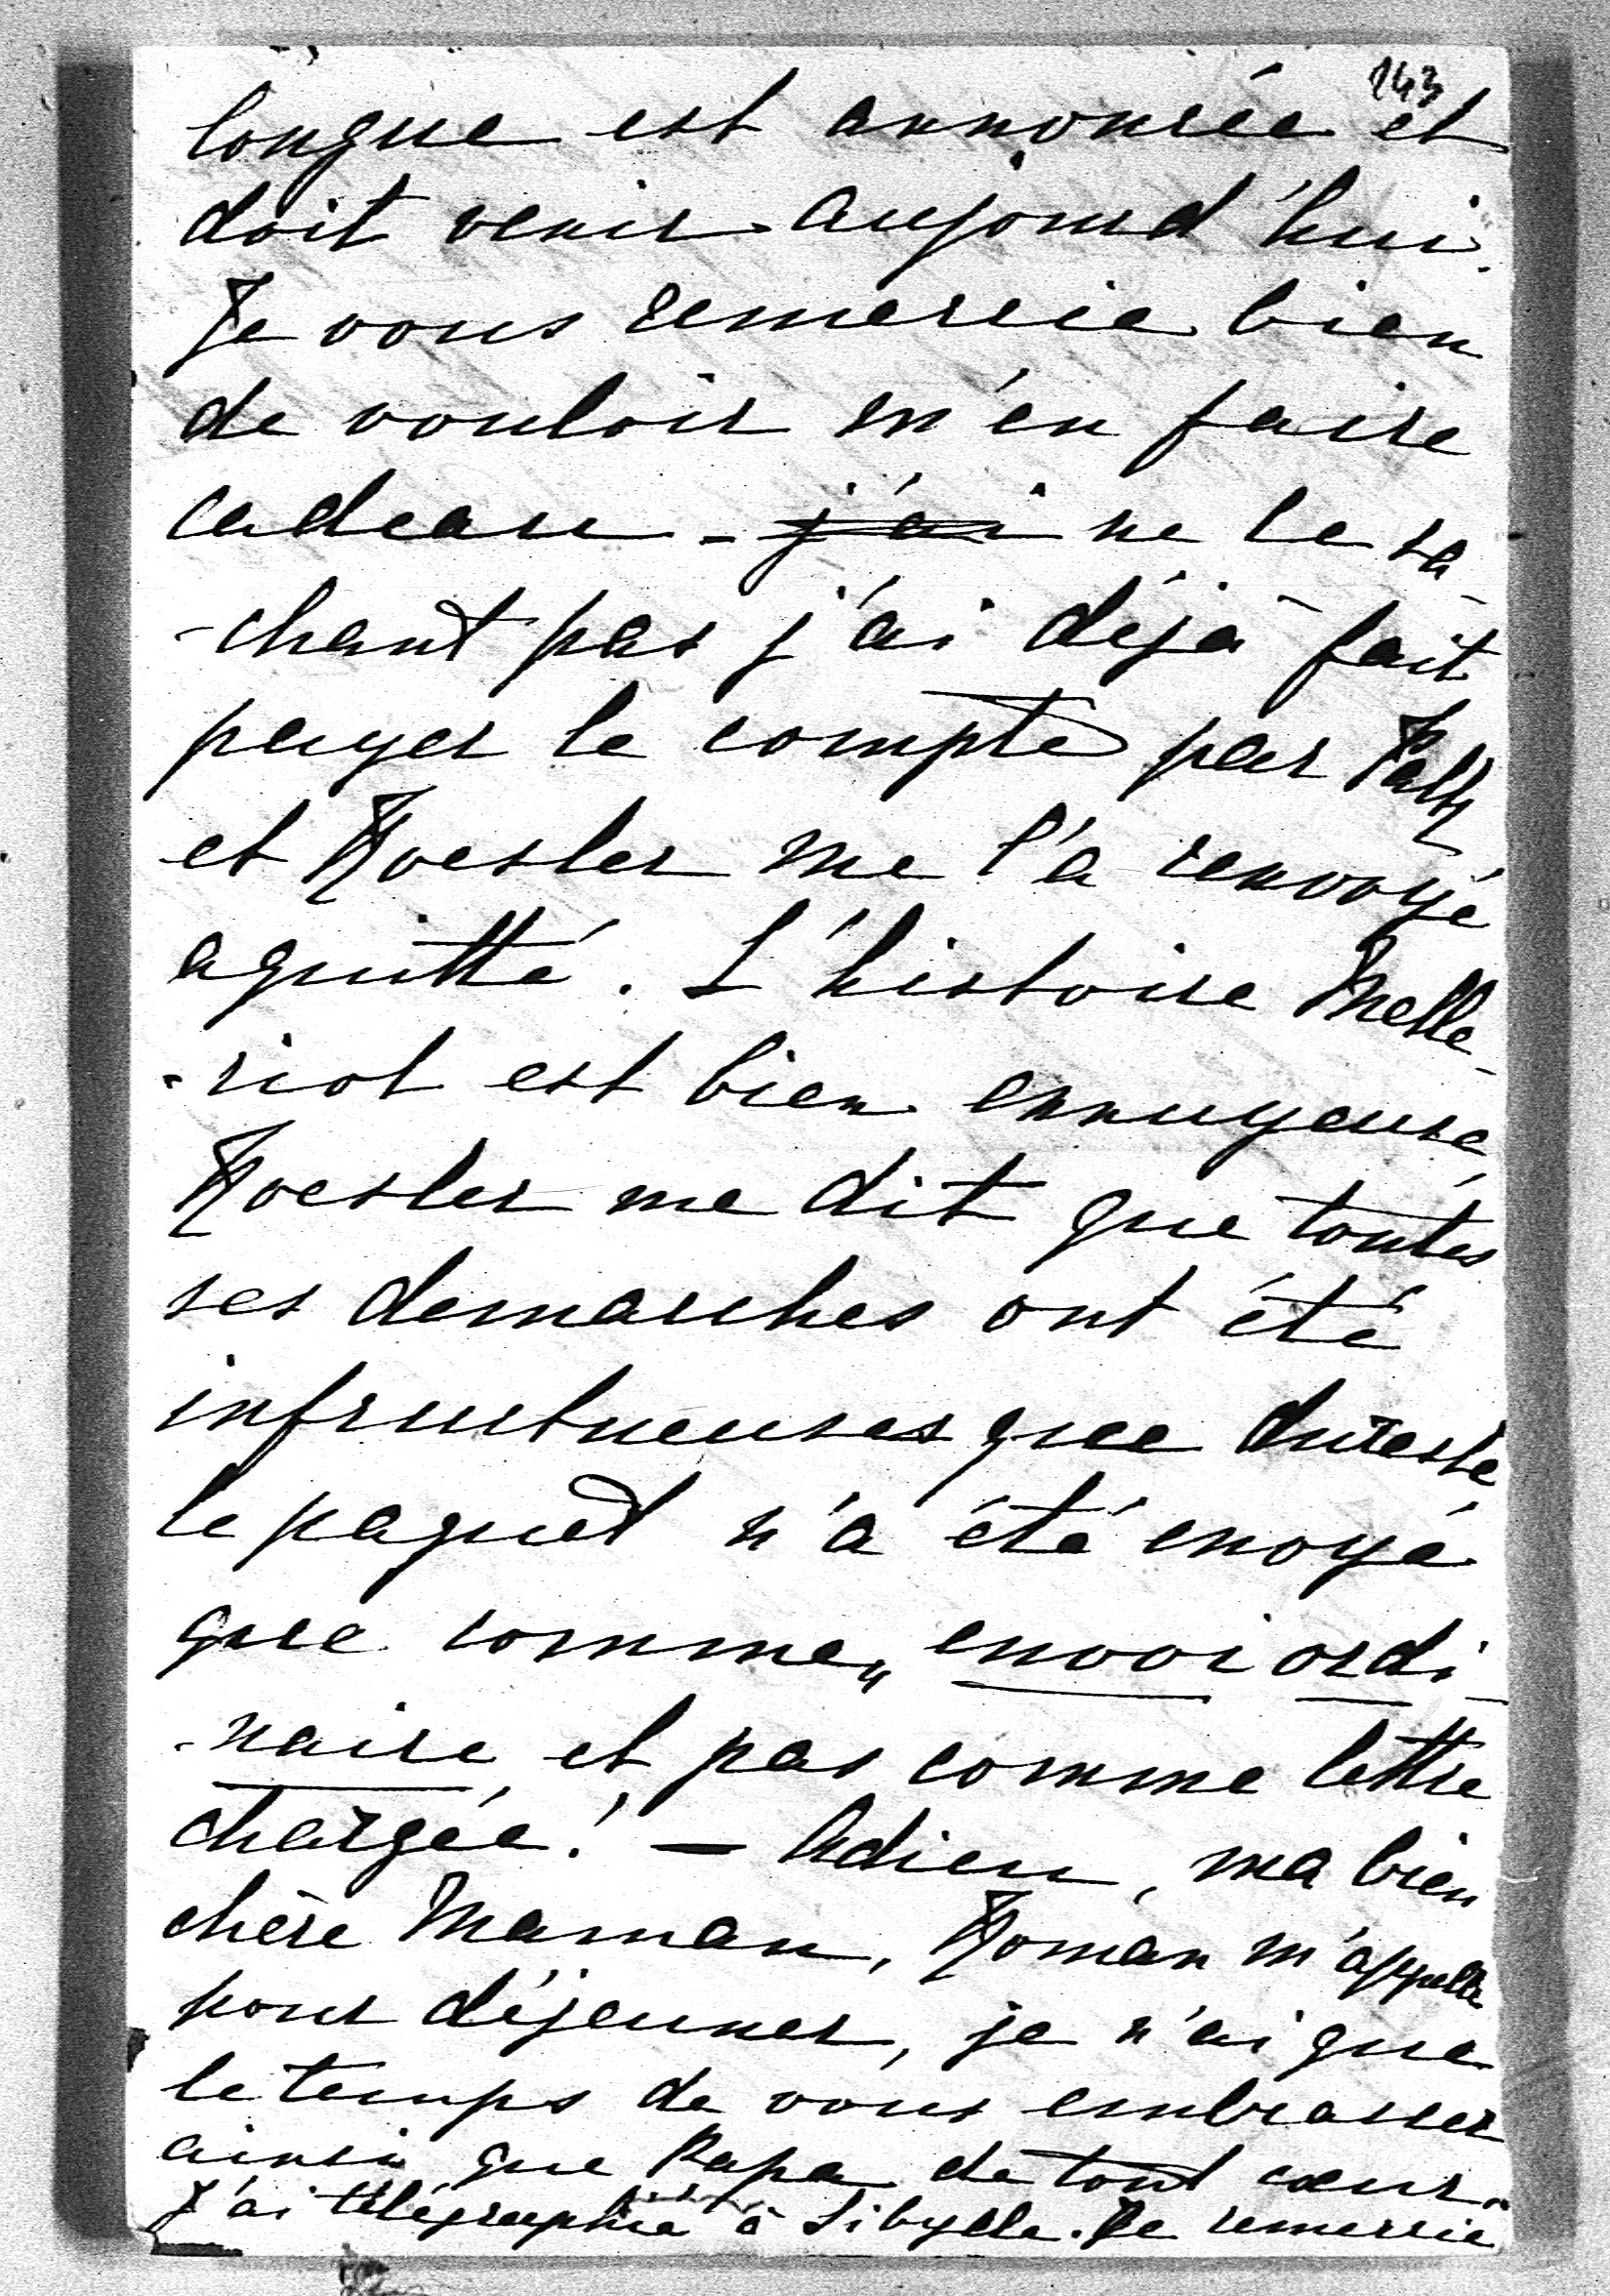 143
longue est annoncée et
doit venir aujourd'hui.
Je vous remercie bien
de vouloir m'en faire
cadeau - j'ai ne le sa-
-chant pas j'ai déjà fait
payer le compte par
et Roesler me l'a renvoyé
aquitté. L'histoire Melle-
-riot est bien ennuyeuse,
Roesler me dit que toutes
ses demarches ont été
infructueuses que dureste
le paquet n'a été envoyé
que comme „envoi ordi-
-naire et pas comme lettre
chargée! — Adieu, ma bien
chère Maman, Roman m'appelle
pour déjeuner, je n'ai que
le temps de vous embrasser
ainsi que Papa de tout cœur.
J'ai télégraphié à Sibylle. Je remercie